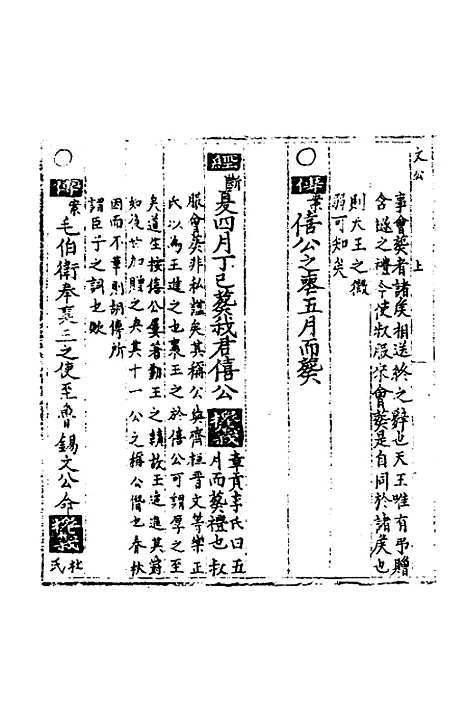 文公 上
事會葬者諸矦相送終之辭也天王唯有弔贈
含襚之禮今使叔服來會葬是自同於諸矦也
則天王之微
弱可知矣
○傳案僖公之薨五月而葬
經斷夏四月丁巳葬我君僖公 章貢李氏曰五
月而葬禮也叔
服會葬非私謚矣其稱公與齊桓晉文等樂正
氏以為王進之也襄王之於僖公可謂厚之至
矣道生按僖公屢著勤王之績故王追進其爵
如後世加贈之矣其十一公之稱公僭也春秋
因而不革則胡傳所
謂臣子之詞也歟
○傳案毛伯衛奉襄王之使至魯錫文公命
杜
氏